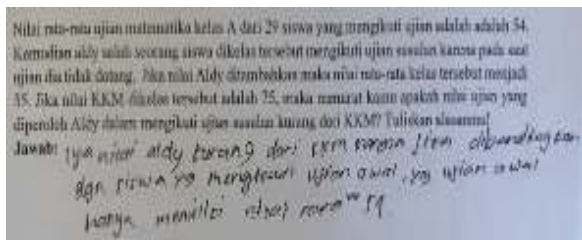 Nilai rata-rata ujian matematika kelas A dari 29 siswa yang mengikuti ujian adalah adalah 54.
Kemudian aldy salah seorang siswa dikelas tersebut mengikuti ujian susulan karena pada saat
ujian dia tidak datang. Jika nilai Aldy ditambahkan maka nilai rata-rata kelas tersebut menjadi
55. Jika nilai KKM dikelas tersebut adalah 75, maka menurut kamu apakah nilai ujian yang
diperoleh Aldy dalam mengikuti ujian susulan kurang dari KKM? Tuliskan alasanmu!
Jawab: iya nilai aldy kurang dari kkm karena jika dibandingkan
dgn siswa yg mengikuti ujian awal, yg ujian awal
hanya memiliki nilai rata"